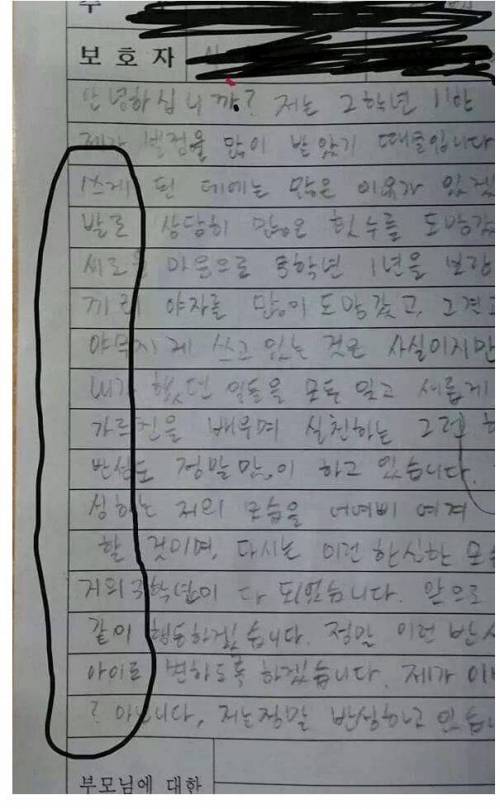 보호자
안녕하십니까? 저는 2학년 11반
제가 벌점을 많이 받았기 때문입니다
쓰게 된 데에는 많은 이유가 있겠
발로 상당히 많은 횟수를 도망갔
새로운 마음으로 3학년 1년을 보람
끼리 야자를 많이 도망갔고, 그러고
야무지게 쓰고 있는 것은 사실이지만
내가 했던 일들을 모두 잊고 새롭게
가르침을 배우며 실천하는 그런
반성도 정말 많이 하고 있습니다.
성하는 저의 모습을 어여삐 여겨
할 것이며, 다시는 이런 한심한 모
거의 3학년이 다 되었습니다. 앞으로
같이 행동하겠습니다. 정말 이런 반
아이로 변하도록 하겠습니다. 제가 이
? 아닙니다, 저는 정말 반성하고 있습
부모님에 대한